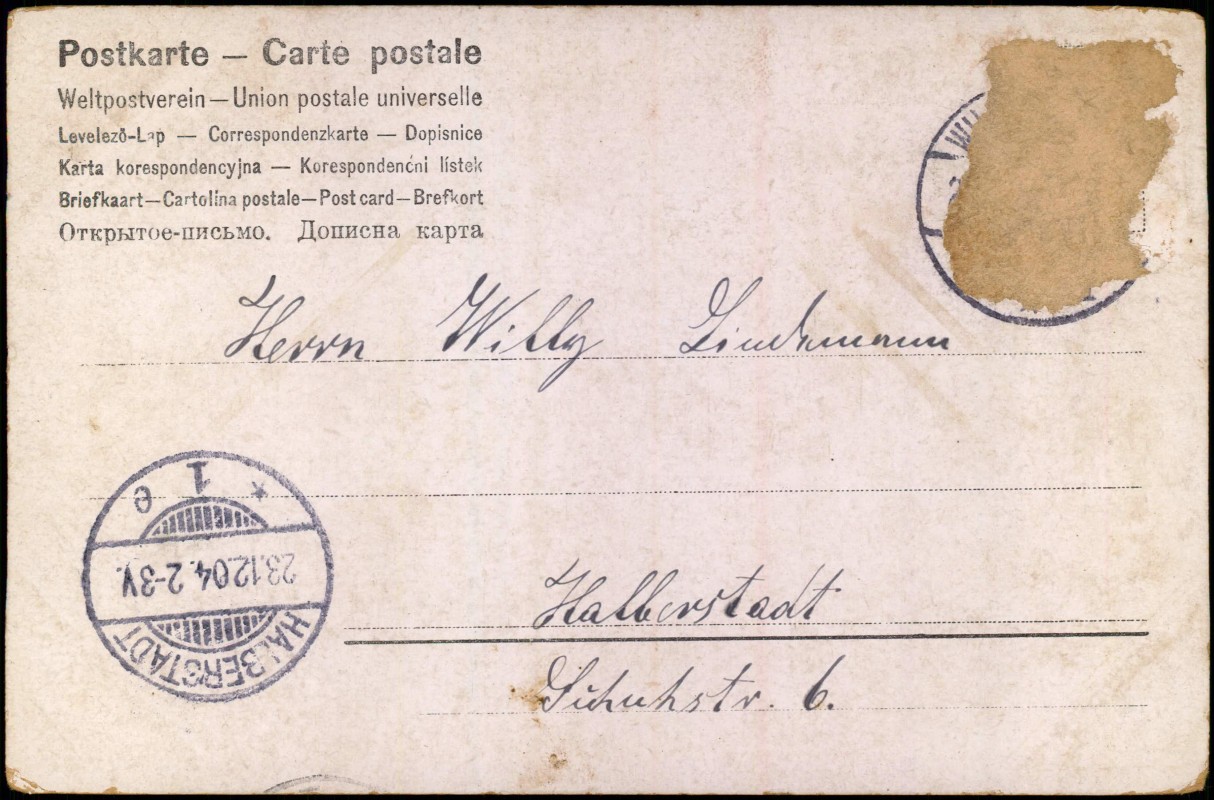 Postkarte — Carte postale
Weltpostverein — Union postale universelle
Levelező-Lap — Correspondenzkarte — Dopisnice
Karta korespondencyjna — Korespondenčni lístek
Briefkaart — Cartolina postale — Post card — Brefkort
Открытое-письмо. Дописна карта
Herrn Willy Lindemann
Halberstadt
Schuhstr. 6.
HALBERSTADT
23.12.04. 2-3V.
* 1 e